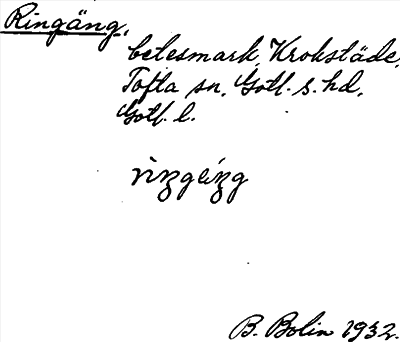 Ringäng,
betesmark, Krokstäde,
Tofta sn, Gotl. s. hd,
Gotl. l.
B. Bolin 1932.